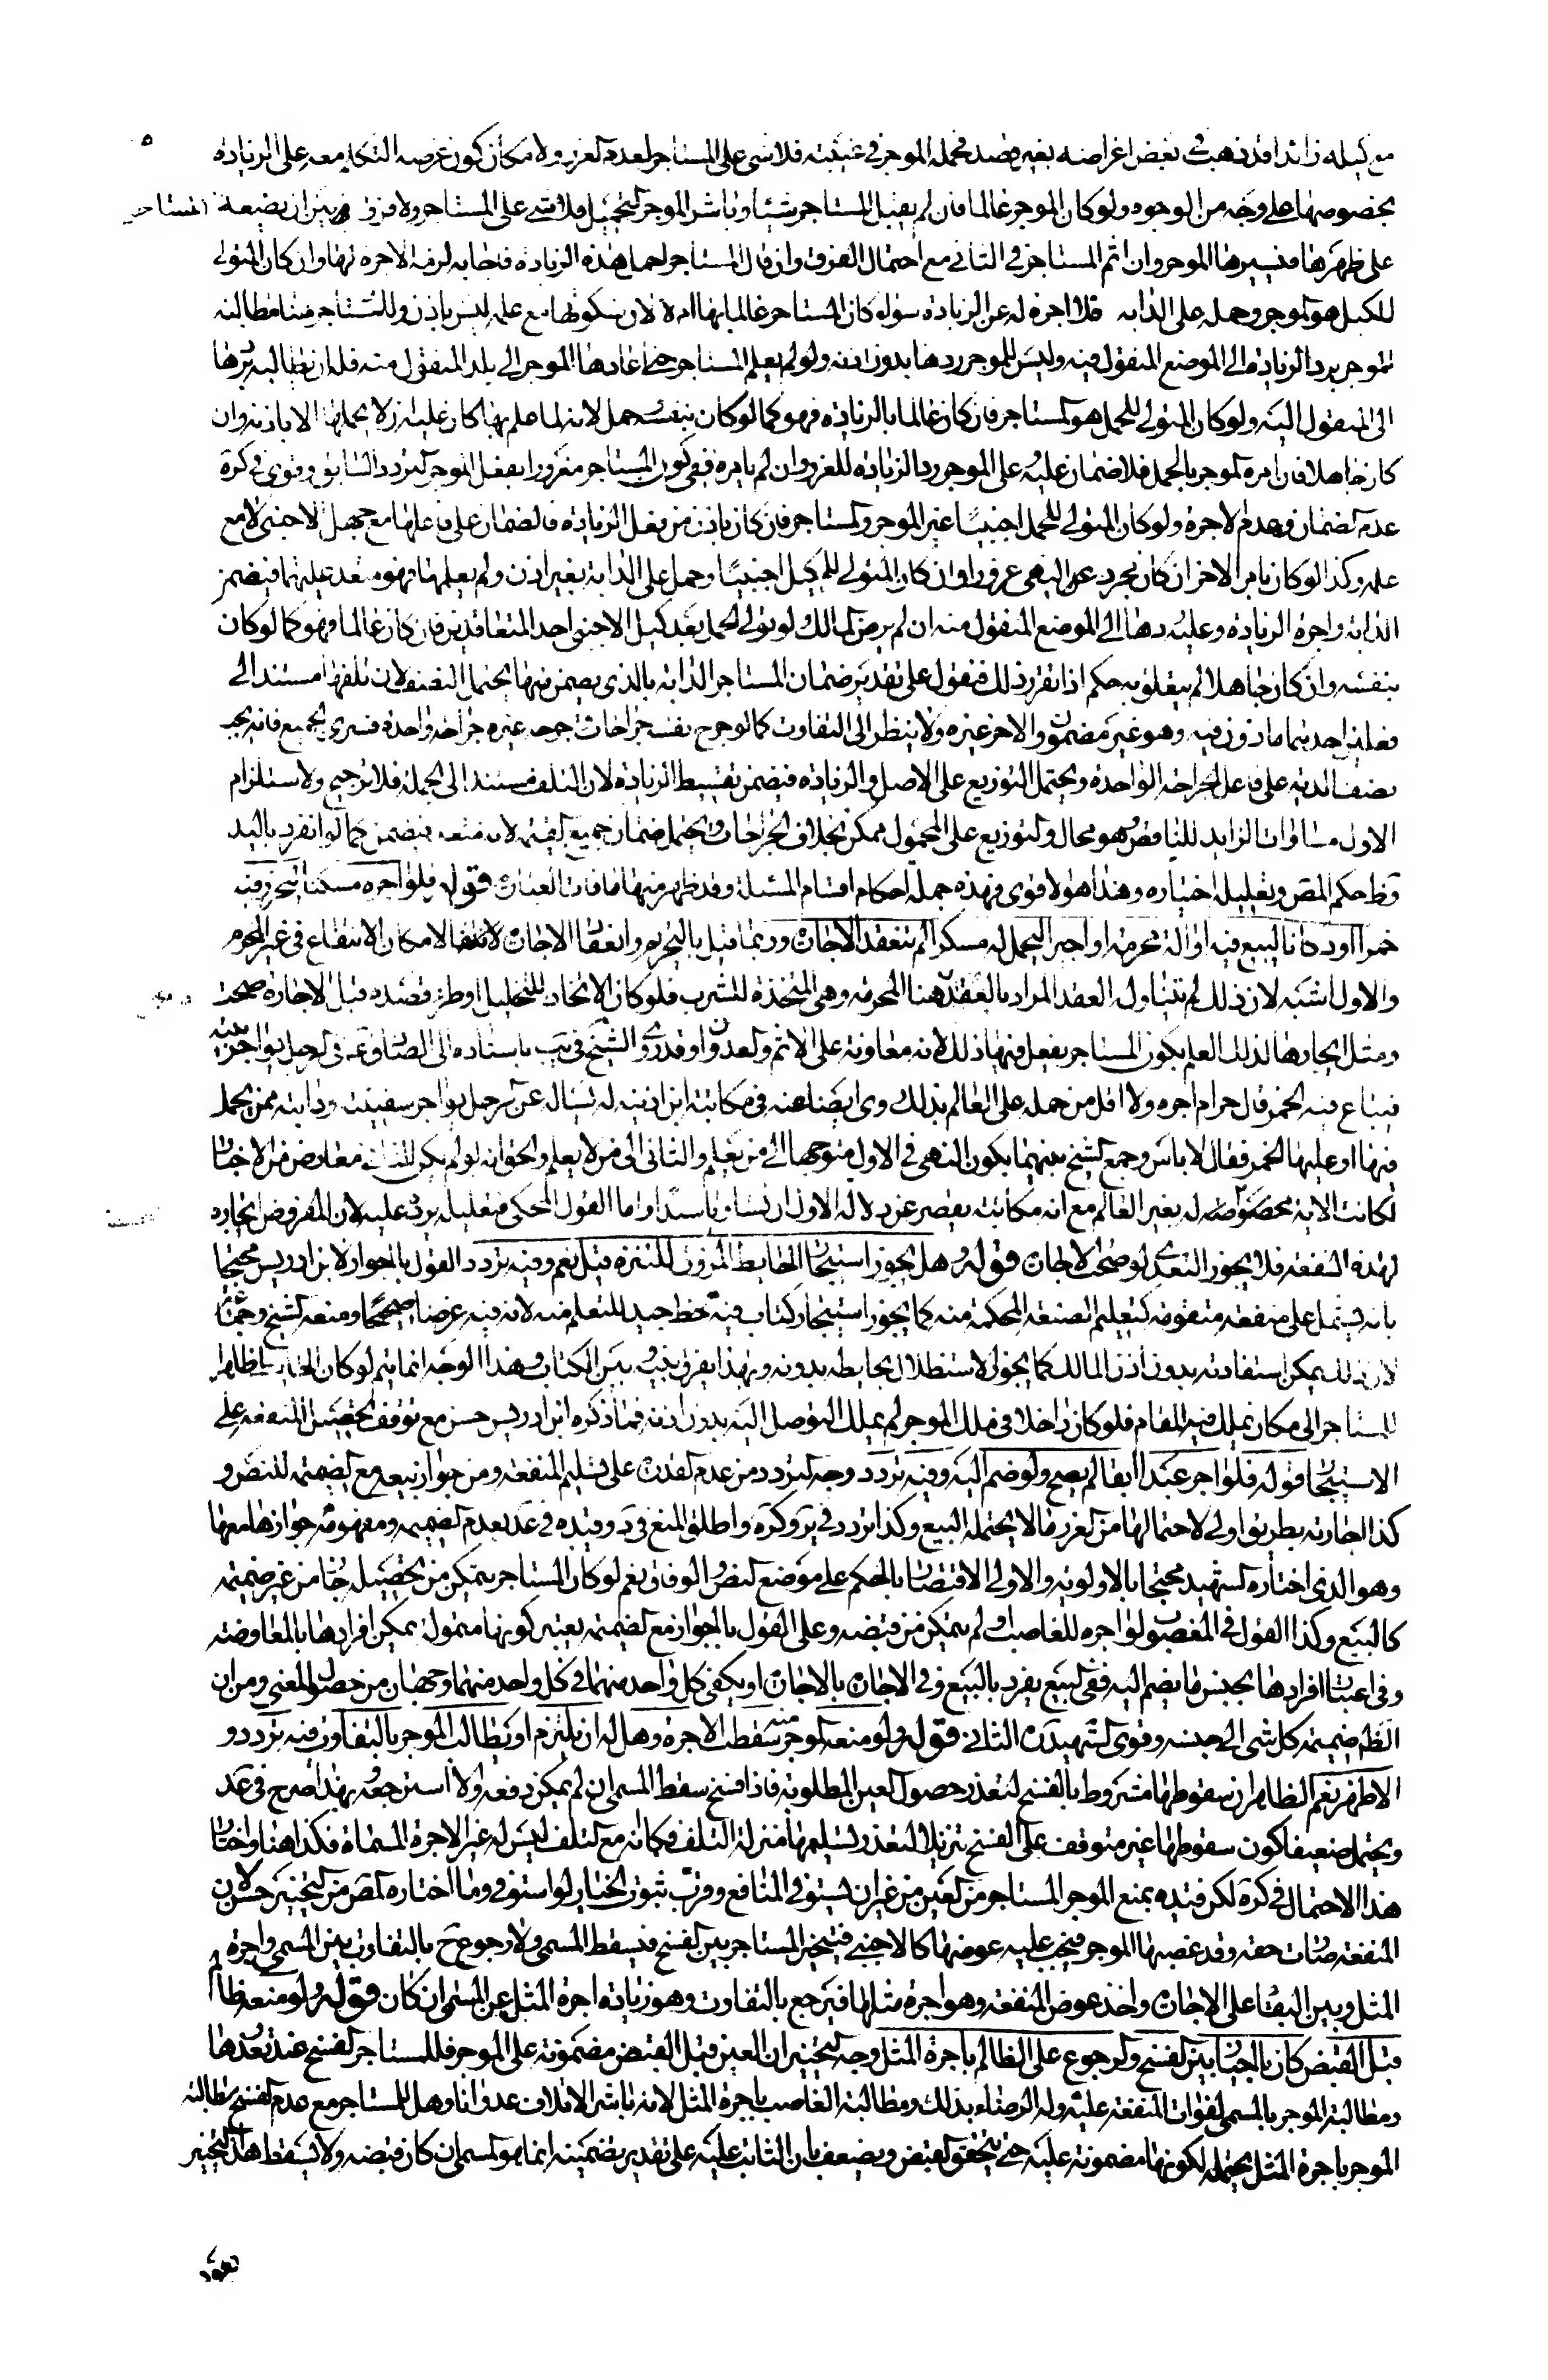 مع كيله زائدا قد ذهب في بعض اغراضه بغير قصد فحمله الموجر في غيبته فلا شى على المستاجر لعدم الغرور ولامكان كون غرضه التكلم معه على الزيادة
بخصوصها على وجه من الوجوه ولو كان الموجر عالما فان لم يقبل المستاجر شيئا وباشر الموجر التحميل فلا شى على المستاجر ولا فرق بين ان يضعه المستاجر
على ظهرها فيسيرها الموجر وان اثم المستاجر في الثاني مع احتمال الفرق وان قال المستاجر احمل هذه الزيادة فاجابه لزمه الاجرة لها وان كان المتولي
للكيل هو الموجر وحمله على الدابه فلا اجرة له عن الزيادة سواء كان المستاجر عالما بها ام لا لان سكوتها مع علمه ليس باذن وللمستاجر مطالبة
الموجر برد الزيادة الى الموضع المنقول منه وليس للموجر ردها بدون اذنه ولو لم يعلم المستاجر حتى اعادها الموجر الى بلد المنقول منه فله ان يطالبه بردها
الى المنقول اليه ولو كان المتولي للحمل هو المستاجر فان كان عالما بالزيادة فهو كما لو كال بنفسه وحمل لانه لما علم بها كان عليه ان لا يحملها الا باذنه وان
كان جاهلا فان امره الموجر بالحمل فلا ضمان عليه وعلى الموجر رد الزيادة للغرور وان لم يامره ففي كون المستاجر مغرورا بفعل الموجر التردد السابق وقوى في كره
عدم الضمان وعدم الاجرة ولو كان المتولي للحمل اجنبيا غير الموجر والمستاجر فان كان باذن من يفعل الزيادة فالضمان على فاعلها مع جهل الاجنبي لا مع
علمه وكذا لو كان بامر الاخر وان كان المتولي للكيل اجنبيا وحمل على الدابة بغير اذن ولم يعلمها فهو متعد عليهما فيضمن
الدابه واجرة الزيادة وعليه ردها الى الموضع المنقول منه ان لم يرض المالك ولو تولى الحمل بعد كيل الاجنبي احد المتعاقدين فان كان عالما فهو كما لو كال
بنفسه وان كان جاهلا لم يتعلق به حكم اذا تقرر ذلك فنقول على تقدير ضمان المستاجر الدابه ما الذي يضمن منها يحتمل النصف لان تلفها مستند الى
فعلين احدهما ماذون فيه وهو غير مضمون والاخر غيره ولا ينظر الى التفاوت كما لو جرح نفسه جراحات وجرحه غيره جراحة واحدة فسرى الجميع فانه يجب
نصف الدية على فاعل الجراحة الواحدة ويحتمل التوزيع على الاصل والزيادة فيضمن بقسط الزيادة لان التلف مستند الى الجملة فلا ترجيح ولاستلزام
الاول مساوات الزايد للناقص وهو محال والتوزيع على المحمول ممكن بخلاف الجراحات ويحتمل ضمان جميع القيمة لانه متعد فيضمن كما لو انفرد باليد
وظ حكم المص وتعليله اختياره وهذا هو الاقوى فهذه جملة احكام اقسام المسئلة وقد ظهر منها ما فات العبارة قوله فلو اجره مسكنا ليحرز فيه
خمرا او دكانا ليبيع فيه او الة محرمة او اجيرا ليحمل له مسكرا لم تنعقد الاجارة وربما قيل بالتحريم وانعقاد الاجارة لامكان الانتفاع في غير المحرم
والاول اشبه لان ذلك لم يتناوله العقد المراد بالعقد هنا المحرمه وهي المتخذة للشرب فلو كان الاتخاذ للتخليل او طرء قصده قبل الاجارة صحت
ومثل ايجارها لذلك العلم بكون المستاجر يفعل فيها ذلك لانه معاونة على الاثم والعدوان وقد روى الشيخ في يب باسناده الى الصادق ع في الرجل يواجر بيته
فيباع فيه الخمر قال حرام اجره ولا اقل من حمله على العالم بذلك وروى ايضا عنه في مكاتبة ابن اذينه له يسال عن الرجل يواجر سفينته ودابته ممن يحمل
فيها او عليها الخمر فقال لا باس وجمع الشيخ بينهما بكون النهي في الاول متوجها الى من يعلم والثاني الى من لا يعلم والحق انه لو لم يكن للثاني معارض من الاخبار
لكانت الاية مخصوصة له بغير العالم مع انه مكاتبة يقصر عن دلاله الاول ان تساويا سندا واما القول المحكي فتعليله يرد عليه لان المفروض ايجاره
لهذه المنفعة فلا يجوز التعدي لو صحت الاجارة قوله وهل يجوز استيجار الحايط المزوق للتنزه قيل نعم وفيه تردد القول بالجواز لابن ادريس محتجا
بانه يشتمل على منفعة متقومه كتعليم الصنعة المحكمة منه كما يجوز استيجار كتاب فيه خط جيد للتعلم منه لانه فيه غرضا صحيحا ومنعه الشيخ وجماعة
لان ذلك يمكن استفادته بدون اذن المالك كما يجوز الاستظلال بحايطه بدونه وبهذا يفرق بينه وبين الكتاب وهذا الوجه انما يتم لو كان الحايط ظاهرا
للمستاجر الى مكان يملك فيه المقام فلو كان داخلا في ملك الموجر لم يملك التوصل اليه بدون اذنه فما ذكره ابن ادريس حسن مع توقف تحصيل المنفعة على
الاستيجار قوله فلو اجر عبدا ابقا لم يصح ولو ضم اليه وفيه تردد وجه التردد من عدم القدرة على تسليم المنفعة ومن جواز بيعه مع الضميمة للنص و
كذا اجارته بطريق اولى لاحتمالها من الغرر ما لا يحتمله البيع وكذا تردد في ير وكره واطلق المنع في د وقيده في عد بعدم الضميمه ومفهومه جوازها معها
وهو الذي اختاره الشهيد محتجا بالاولوية والاولى الاقتصار بالحكم على موضع النص والوفاق نعم لو كان المستاجر يتمكن من تحصيله جاز من غير ضميمة
كالبيع وكذا القول في المغصوب لو اجره للغاصب او لم يتمكن من قبضه وعلى القول بالجواز مع الضميمة يعتبر كونها متمولة يمكن افرادها بالمعاوضة
وفي اعتبار افرادها بجنس ما يضم اليه ففي البيع يفرد بالبيع وفي الاجارة بالاجارة او يكفي كل واحد منهما في كل واحد منهما وجهان من حصول المعنى ومن ان
الظ ضميمة كل شى الى جنسه وقوى الشهيد ره الثاني قوله ولو منعه الموجر منه سقطت الاجرة وهل له ان يلتزم او يطالب الموجر بالتفاوت فيه تردد و
الاظهر نعم الظاهر ان سقوطها مشروط بالفسخ لتعذر حصول العين المطلوبة فاذا فسخ سقط المسمى ان لم يكن دفعه والا استرجعه وبهذا صرح في عد
ويحتمل ضعيفا كون سقوطها غير متوقف على الفسخ تنزيلا لتعذر تسليمها منزلة التلف فكما انه مع التلف ليس له غير الاجرة المسماة فكذا هنا واختار
هذا الاحتمال في كره لكن قيده بمنع الموجر المستاجر من العين من غير ان يستوفي المنافع وقرب ثبوت الخيار لو استوفى وما اختاره المص من التخيير حسن لان
المنفعة صارت حقه وقد غصبها الموجر فيجب عليه عوضها كالاجنبي فيتخير المستاجر بين الفسخ فيسقط المسمى ولا رجوع ح بالتفاوت بين المسمى واجرة
المثل وبين البقاء على الاجارة واخذ عوض المنفعة وهو اجرة مثلها فيرجع بالتفاوت وهو زيادة اجرة المثل عن المسمى ان كان قوله ولو منعه ظالم
قبل القبض كان بالخيار بين الفسخ والرجوع على الظالم باجرة المثل وجه التخيير ان العين قبل القبض مضمونة على الموجر فللمستاجر الفسخ عند تعذرها
ومطالبة الموجر بالمسمى لفوات المنفعة عليه وله الرضاء بذلك ومطالبة الغاصب باجرة المثل لانه باشر الاتلاف عدوانا وهل للمستاجر مع عدم الفسخ مطالبة
الموجر باجرة المثل يحتمله لكونها مضمونة عليه حتى يتحقق القبض ويضعف بان الثابت عليه على تقدير تضمينه انما هو المسمى ان كان قبضه ولا يسقط هذا التخيير